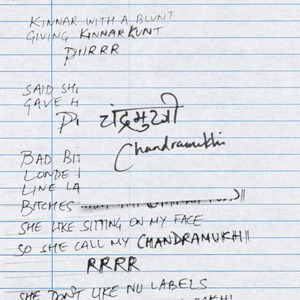 KINNAR WITH A BLUNT
GIVING KINNAR KUNT
PIIRRR
SAID SH
GAVE H
चंद्रमुखी
Chandramukhi
BAD BI
LONDE
LINE LA
BITCHES
SHE LIKE SITTING ON MY FACE
SO SHE CALL MY CHANDRAMUKHII
RRRR
SHE DON'T LIKE NO LABELS